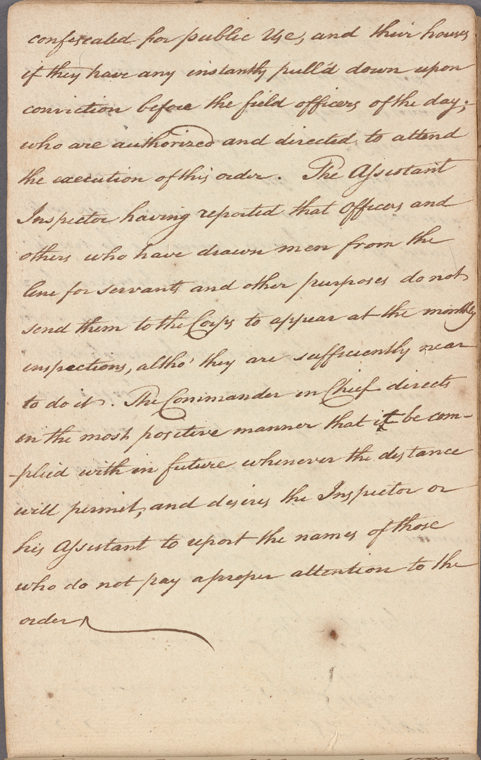 confescated for public Use, and their houses
if they have any instantly pull'd down upon
conviction before the field officers of the day;
who are authorized and directed to attend
the execution of this order. The Assistant
Inspector having reported that Officers and
others who have drawn men from the
line for servants and other purposes do not
send them to the Corps to appear at the monthly
inspections, altho' they are sufficiently near
to do it. The Commander in Chief directs
in the most positive manner that it be com-
-plied with in future whenever the distance
will permit, and desires the Inspector or
his Assistant to report the names of those
who do not pay a proper attention to the
order